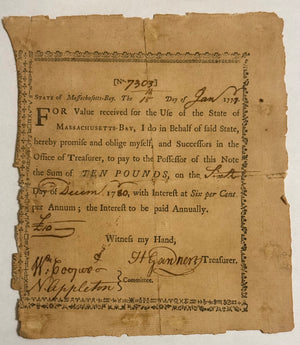 [No 7303]
STATE of Massachusetts-Bay, The 1st Day of Jany 177
FOR Value received for the Use of the State of
MASSACHUSETTS-BAY, I do in Behalf of said State,
hereby promise and oblige myself, and Successors in the
Office of Treasurer, to pay to the Possessor of this Note
the Sum of TEN POUNDS, on the
Day of Decem 1780, with Interest at Six per Cent.
per Annum; the Interest to be paid Annually.
£10
Witness my Hand,
H Gardner Treasurer.
Wm Cooper
N Appleton } Committee.